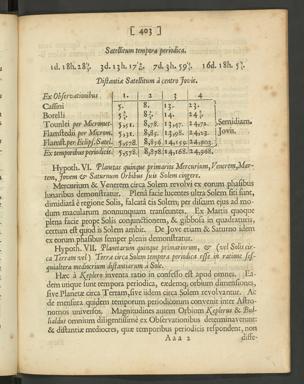 [ 403 ]
Satellitum tempora periodica.
1d. 18h. 28⅗′. 3d. 13h. 17 7d. 3h. 59 16d. 18h. 5
Distantiæ Satellitum à centro Jovis.
Ex Observationibus 1. 2 3 4
Cassini 5. 8. 13. 23.
Borelli 5⅔. 8⅔. 14. 24⅔.
Tounlei per Micromet. 5,51. 8,78. 13,47. 24,72.
Flamstedii per Microm. 5,31. 8,85. 13,98. 24,23.
Flamst. per Eclips. Satel. 5,578. 8,876. 14,159. 24,903.
Ex temporibus periodicis. 5,578. 8,878. 14,168. 24,968.
Semidiam.
Jovis.
Hypoth. VI. Planetas quinque primarios Mercurium, Venerem, Mar-
tem, Jovem & Saturnum Orbibus suis Solem cingere.
Mercurium & Venerem circa Solem revolvi ex eorum phasibus
lunaribus demonstratur. Plenâ facie lucentes ultra Solem siti sunt,
dimidiatâ è regione Solis, falcatâ cis Solem; per discum ejus ad mo-
dum macularum nonnunquam transeuntes. Ex Martis quoque
plena facie prope Solis conjunctionem, & gibbosa in quadraturis,
certum est quod is Solem ambit. De Jove etiam & Saturno idem
ex eorum phasibus semper plenis demonstratur.
Hypoth. VII. Planetarum quinque primariorum, & (vel Solis cir-
ca Terram vel) Terræ circa Solem tempora periodica esse in ratione ses-
quialtera mediocrium distantiarum à Sole.
Hæc à Keplero inventa ratio in confesso est apud omnes. Ea-
dem utique sunt tempora periodica, eædemq; orbium dimensiones,
sive Planetæ circa Terram, sive iidem circa Solem revolvantur. Ac
de mensura quidem temporum periodicorum convenit inter Astro-
nomos universos. Magnitudines autem Orbium Keplerus & Bul-
lialdus omnium diligentissimè ex Observationibus determinaverunt:
& distantiæ mediocres, quæ temporibus periodicis respondent, non
Aaa 2 diffe-